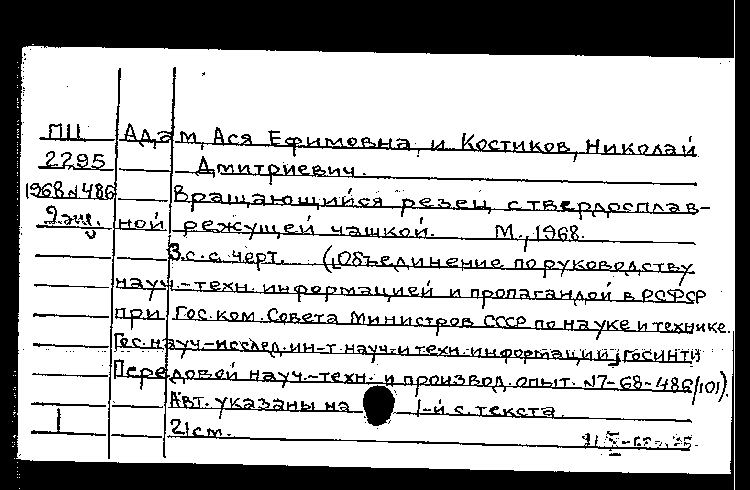 П11 Адам, Ася Ефимовна, и Костиков, Николай
2295 Дмитриевич.
1968 №486 Вращающийся резец с твердосплав-
2 экз. ной режущей чашкой. М., 1968.
3 с. с черт. (Объединение по руководству
науч.-техн. информацией и пропагандой в РСФСР
при Гос. ком. Совета Министров СССР по науке и технике.
Гос. науч.-исслед. ин-т науч. и техн. информации, ГОСИНТИ
Передовой науч.-техн. и производ. опыт. №7-68-486/101).
Авт. указаны на 1-й с. текста.
1 21 см.